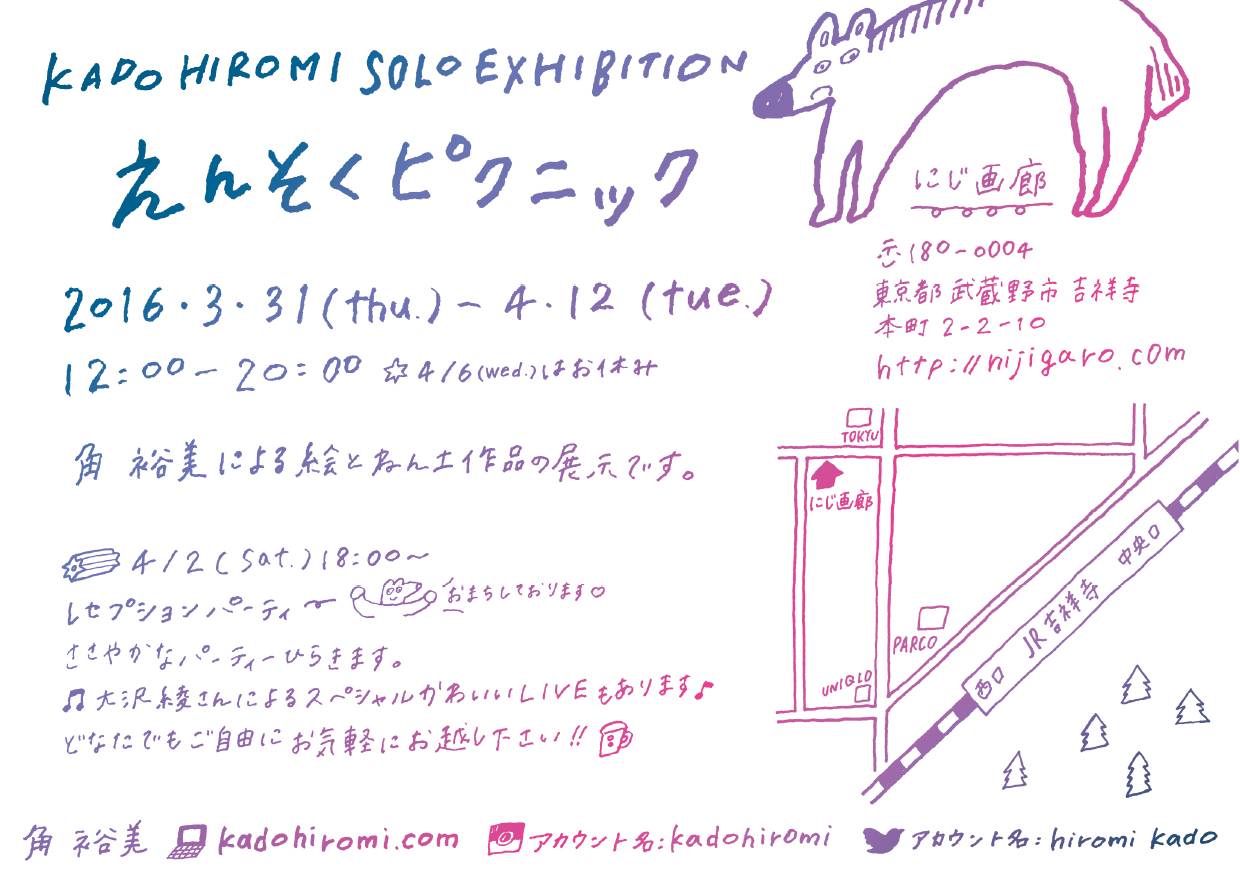 KADO HIROMI SOLO EXHIBITION
えんそくピクニック
2016・3・31(thu.)− 4・12 (tue.)
12:00− 20:00 ☆4/6(wed.)はお休み
角 裕美による絵とねんど作品の展示です。
4/2 (sat.) 18:00〜
レセプションパーティー
おまちしております♡
ささやかなパーティーひらきます。
♫大沢綾さんによるスペシャルかわいいLIVEもあります♪
どなたでもご自由にお気軽にお越し下さい!!
にじ画廊
〒180-0004
東京都 武蔵野市 吉祥寺
本町 2-2-10
http://nijigaro.com
TOKYU
にじ画廊
PARCO
UNIQLO
中央口
JR 吉祥寺
西口
角 裕美 kadohiromi.com アカウント名:kadohiromi アカウント名:hiromi kado